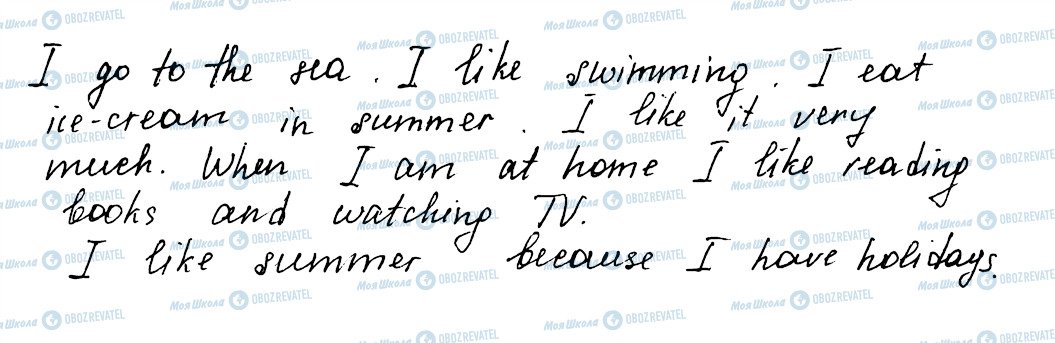 I go to the sea. I like swimming. I eat
ice-cream in summer. I like it very
much. When I am at home I like reading
books and watching TV.
I like summer because I have holidays.